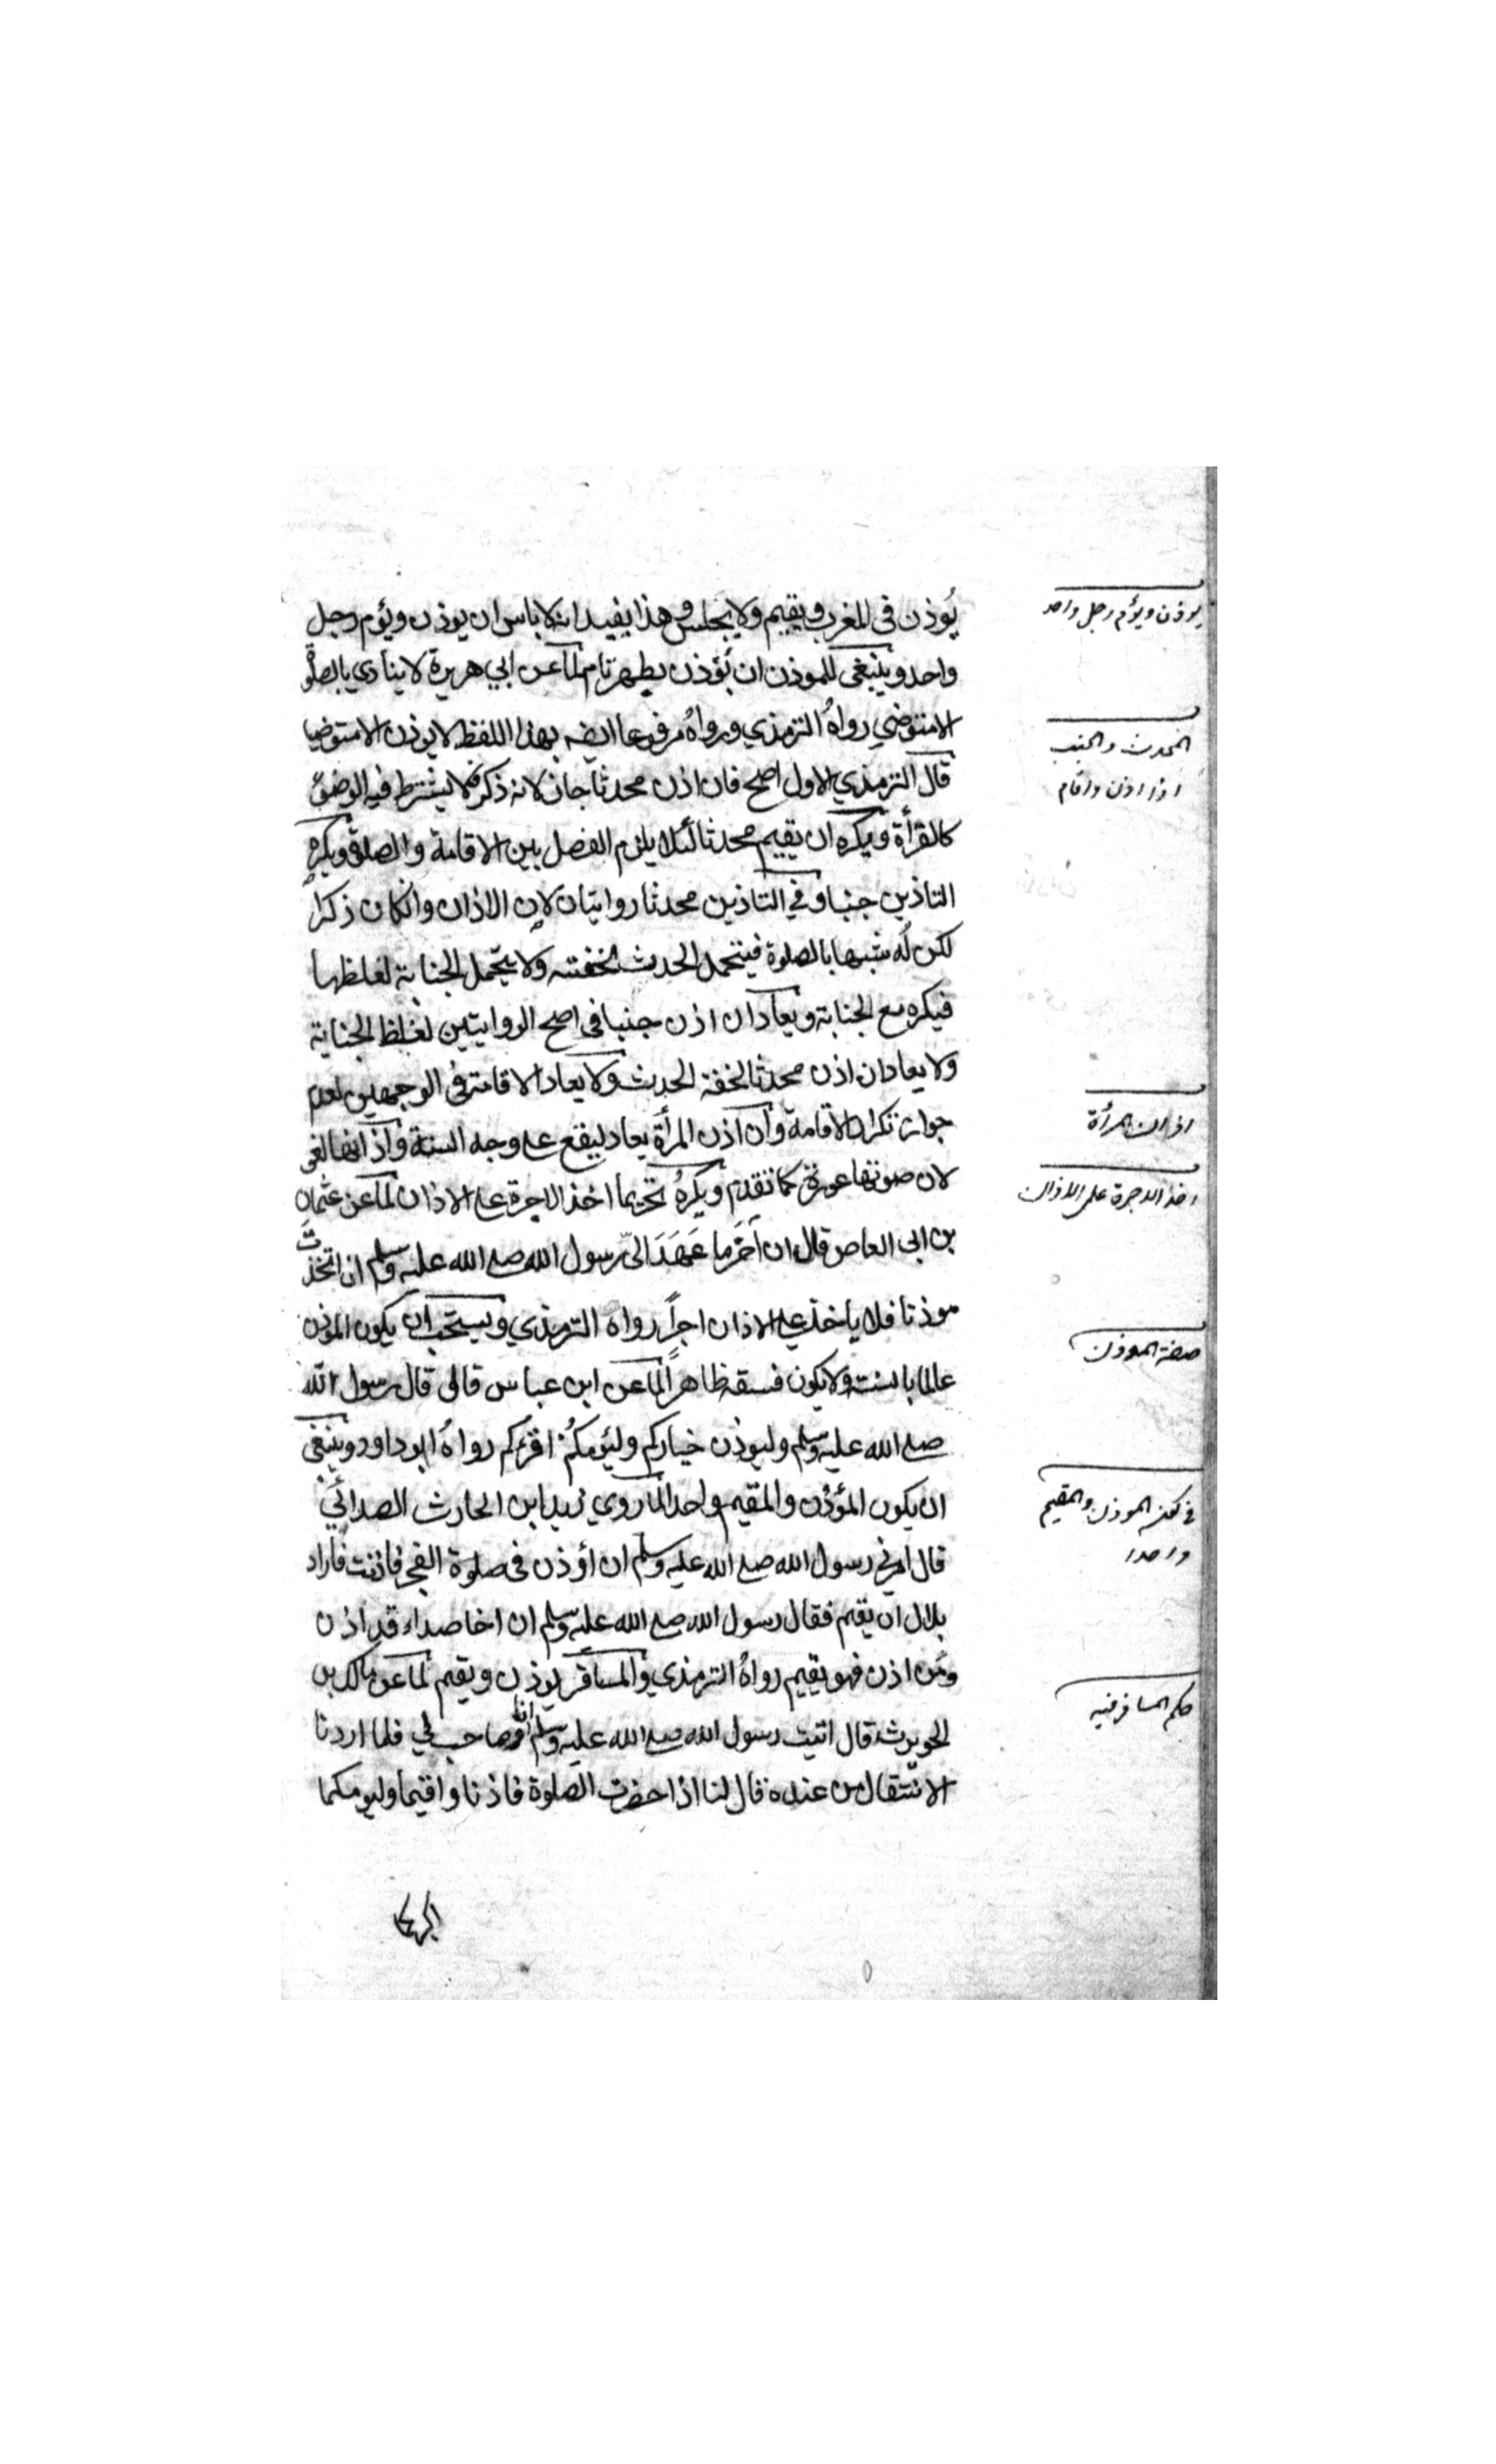 يُوذن فى المغرب ويقيم ولا يجلس وهذا يفيد انه لا باس ان يوذن ويؤم رجل
واحد وينبغى للموذن ان يُؤذن بطهر تام لما عن ابي هريرة لا ينادي بالصلوة
الا متوضي رواهُ الترمذي ورواهُ مرفوعا ايضه بهذا اللفظ لا يوذن الا متوضيا
قال الترمذي الاول اصح فان اذن محدثا جاز لانه ذكر فلا يشترط فيه الوضوء
كالقرأة ويكره ان يقيم محدثا لئلا يلزم الفصل بين الاقامة والصلوة ويكره
التاذين جنبا وفي التاذين محدثا روايتان لان الاذان وانكان ذكرا
لكن لُه شبها بالصلوة فيتحمل الحدث لخفته ولا يتحمل الجنابة لغلظها
فيكره مع الجنابة ويعاد ان اذن جنبا فى اصح الروايتين لغلظ الجنابة
ولا يعاد ان اذن محدثا لخفة الحدث ولا يعاد الاقامة فى الوجهين لعدم
جواز تكرار الاقامة وان اذن المرأة يعاد ليقع على وجه السنة واذانها لغى
لان صوتها عورة كما تقدم ويكرهُ تحريما اخذ الاجرة على الاذان لما عن عثمان
بن ابى العاص قال ان آخَر ما عَهَدَ الىّ رسول الله صلى الله عليه وسلم ان اتخذتَّ
موذنا فلا ياخذ على الاذان اجراً رواه الترمذي ويستحب ان يكون الموذن
عالما بالسنة ولا يكون فسقه ظاهراً لما عن ابن عباس قال قال رسول الله
صلى الله عليه وسلم وليوذن خياركم وليُؤمكُم اقرءكم رواهُ ابو داود وينبغى
ان يكون المؤذن والمقيم واحدا لما روي زيد ابن الحارث الصدائي
قال امرنى رسول الله صلى الله عليه وسلم ان أوذن فى صلوة الفجر فاذنت فأراد
بلال ان يقيم فقال رسول الله صلى الله عليه وسلم ان اخا صداء قد اذن
ومَن اذن فهو يقيم رواهُ الترمذي والمسافر يوذن ويقيم لما عن مالك بن
الحويرث قال اتيت رسول الله صلى الله عليه وسلم انا وصاحب لي فلما اردنا
الانتقال من عنده قال لنا اذا حضرت الصلوة فاذنا واقيما وليومكما
اكبركما
يوذن ويؤم رجل واحد
المحدث والجنب
اذا اذن واقام
اذان المرأة
اخذ الاجرة على الاذان
صفة الموذن
فى كون الموذن والمقيم
واحدا
حكم المسافر فيه